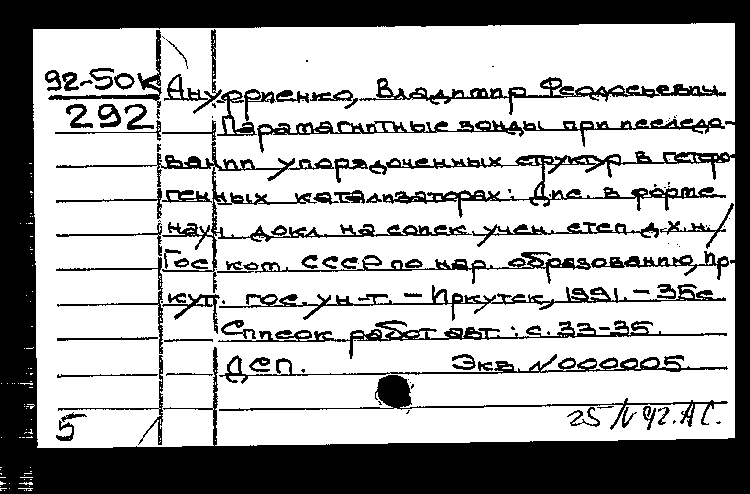 92-50К
292
Ануфриенко, Владимир Феодосьевич.
Парамагнитные зонды при исследо-
вании упорядоченных структур в гетеро-
генных катализаторах: Дис. в форме
науч. докл. на соиск. учен. степ. д.х.н./
Гос. ком. СССР по нар. образованию, Ир-
кут. гос. ун-т. - Иркутск, 1991. - 35с.
Список работ авт.: с. 33-35.
ДСП. Экз. N000005.
5
25/IV 92. АС.